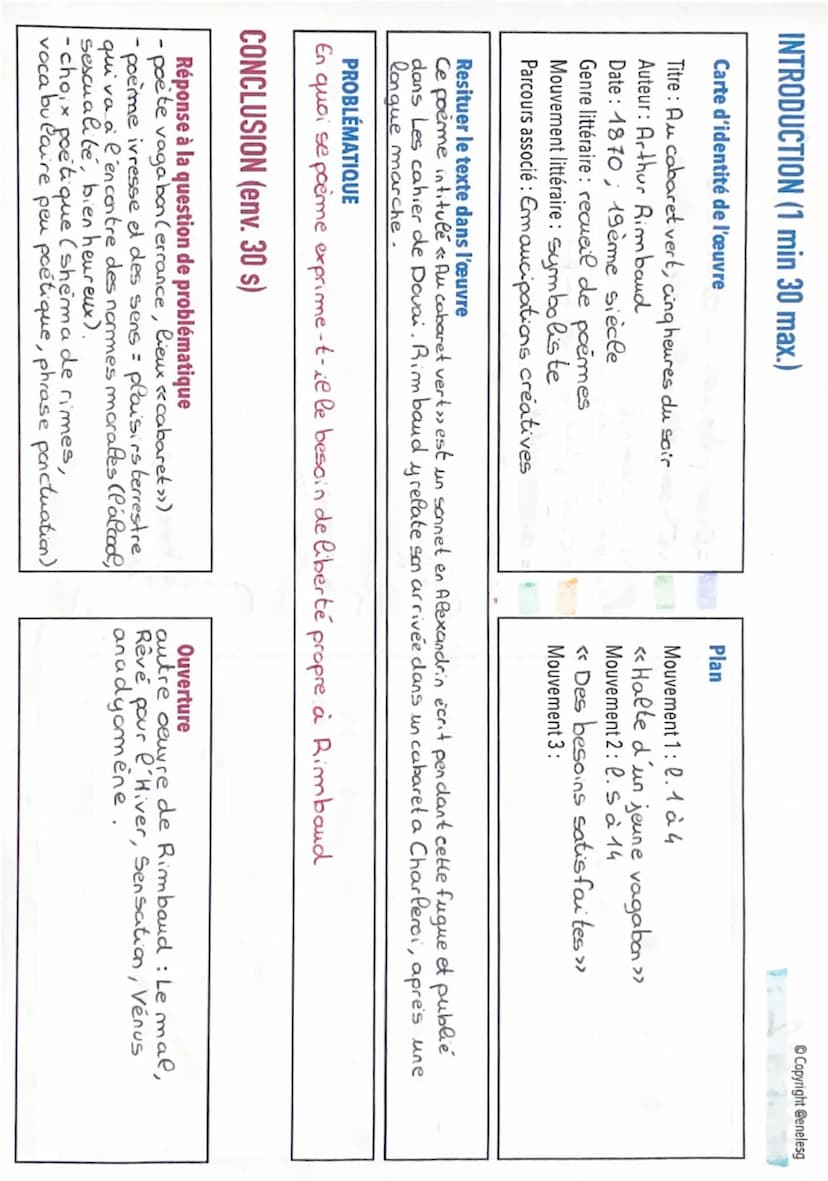 © Copyright @enelesg
INTRODUCTION (1 min 30 max.)
Carte d'identité de l'œuvre
Titre : Au cabaret vert, cinq heures du soir
Auteur : Arthur Rimbaud
Date : 1870 ; 19ème siècle
Genre littéraire : recueil de poèmes
Mouvement littéraire : symboliste
Parcours associé : Emancipations créatives
Plan
Mouvement 1 : l. 1 à 4
« Halte d'un jeune vagabon »
Mouvement 2 : l. 5 à 14
« Des besoins satisfaites »
Mouvement 3 :
Resituer le texte dans l'œuvre
Ce poème intitulé « Au cabaret vert » est un sonnet en Alexandrin écrit pendant cette fugue et publié
dans Les cahier de Douai. Rimbaud y relate son arrivée dans un cabaret a Charleroi, après une
longue marche.
PROBLÉMATIQUE
En quoi se poème exprime-t-il le besoin de liberté propre à Rimbaud
CONCLUSION (env. 30 s)
Réponse à la question de problématique
- poète vagabon (errance, lieux « cabaret »)
- poème ivresse et des sens = plaisirs terrestre
qui va à l'encontre des normes morales (l'alcool,
sescualité, bien heureux).
- choix poétique (shéma de rimes,
vocabulaire peu poétique, phrase ponctuation)
Ouverture
autre oeuvre de Rimbaud : Le mal,
Rêvé pour l'Hiver, Sensation, Vénus
anadyomène.